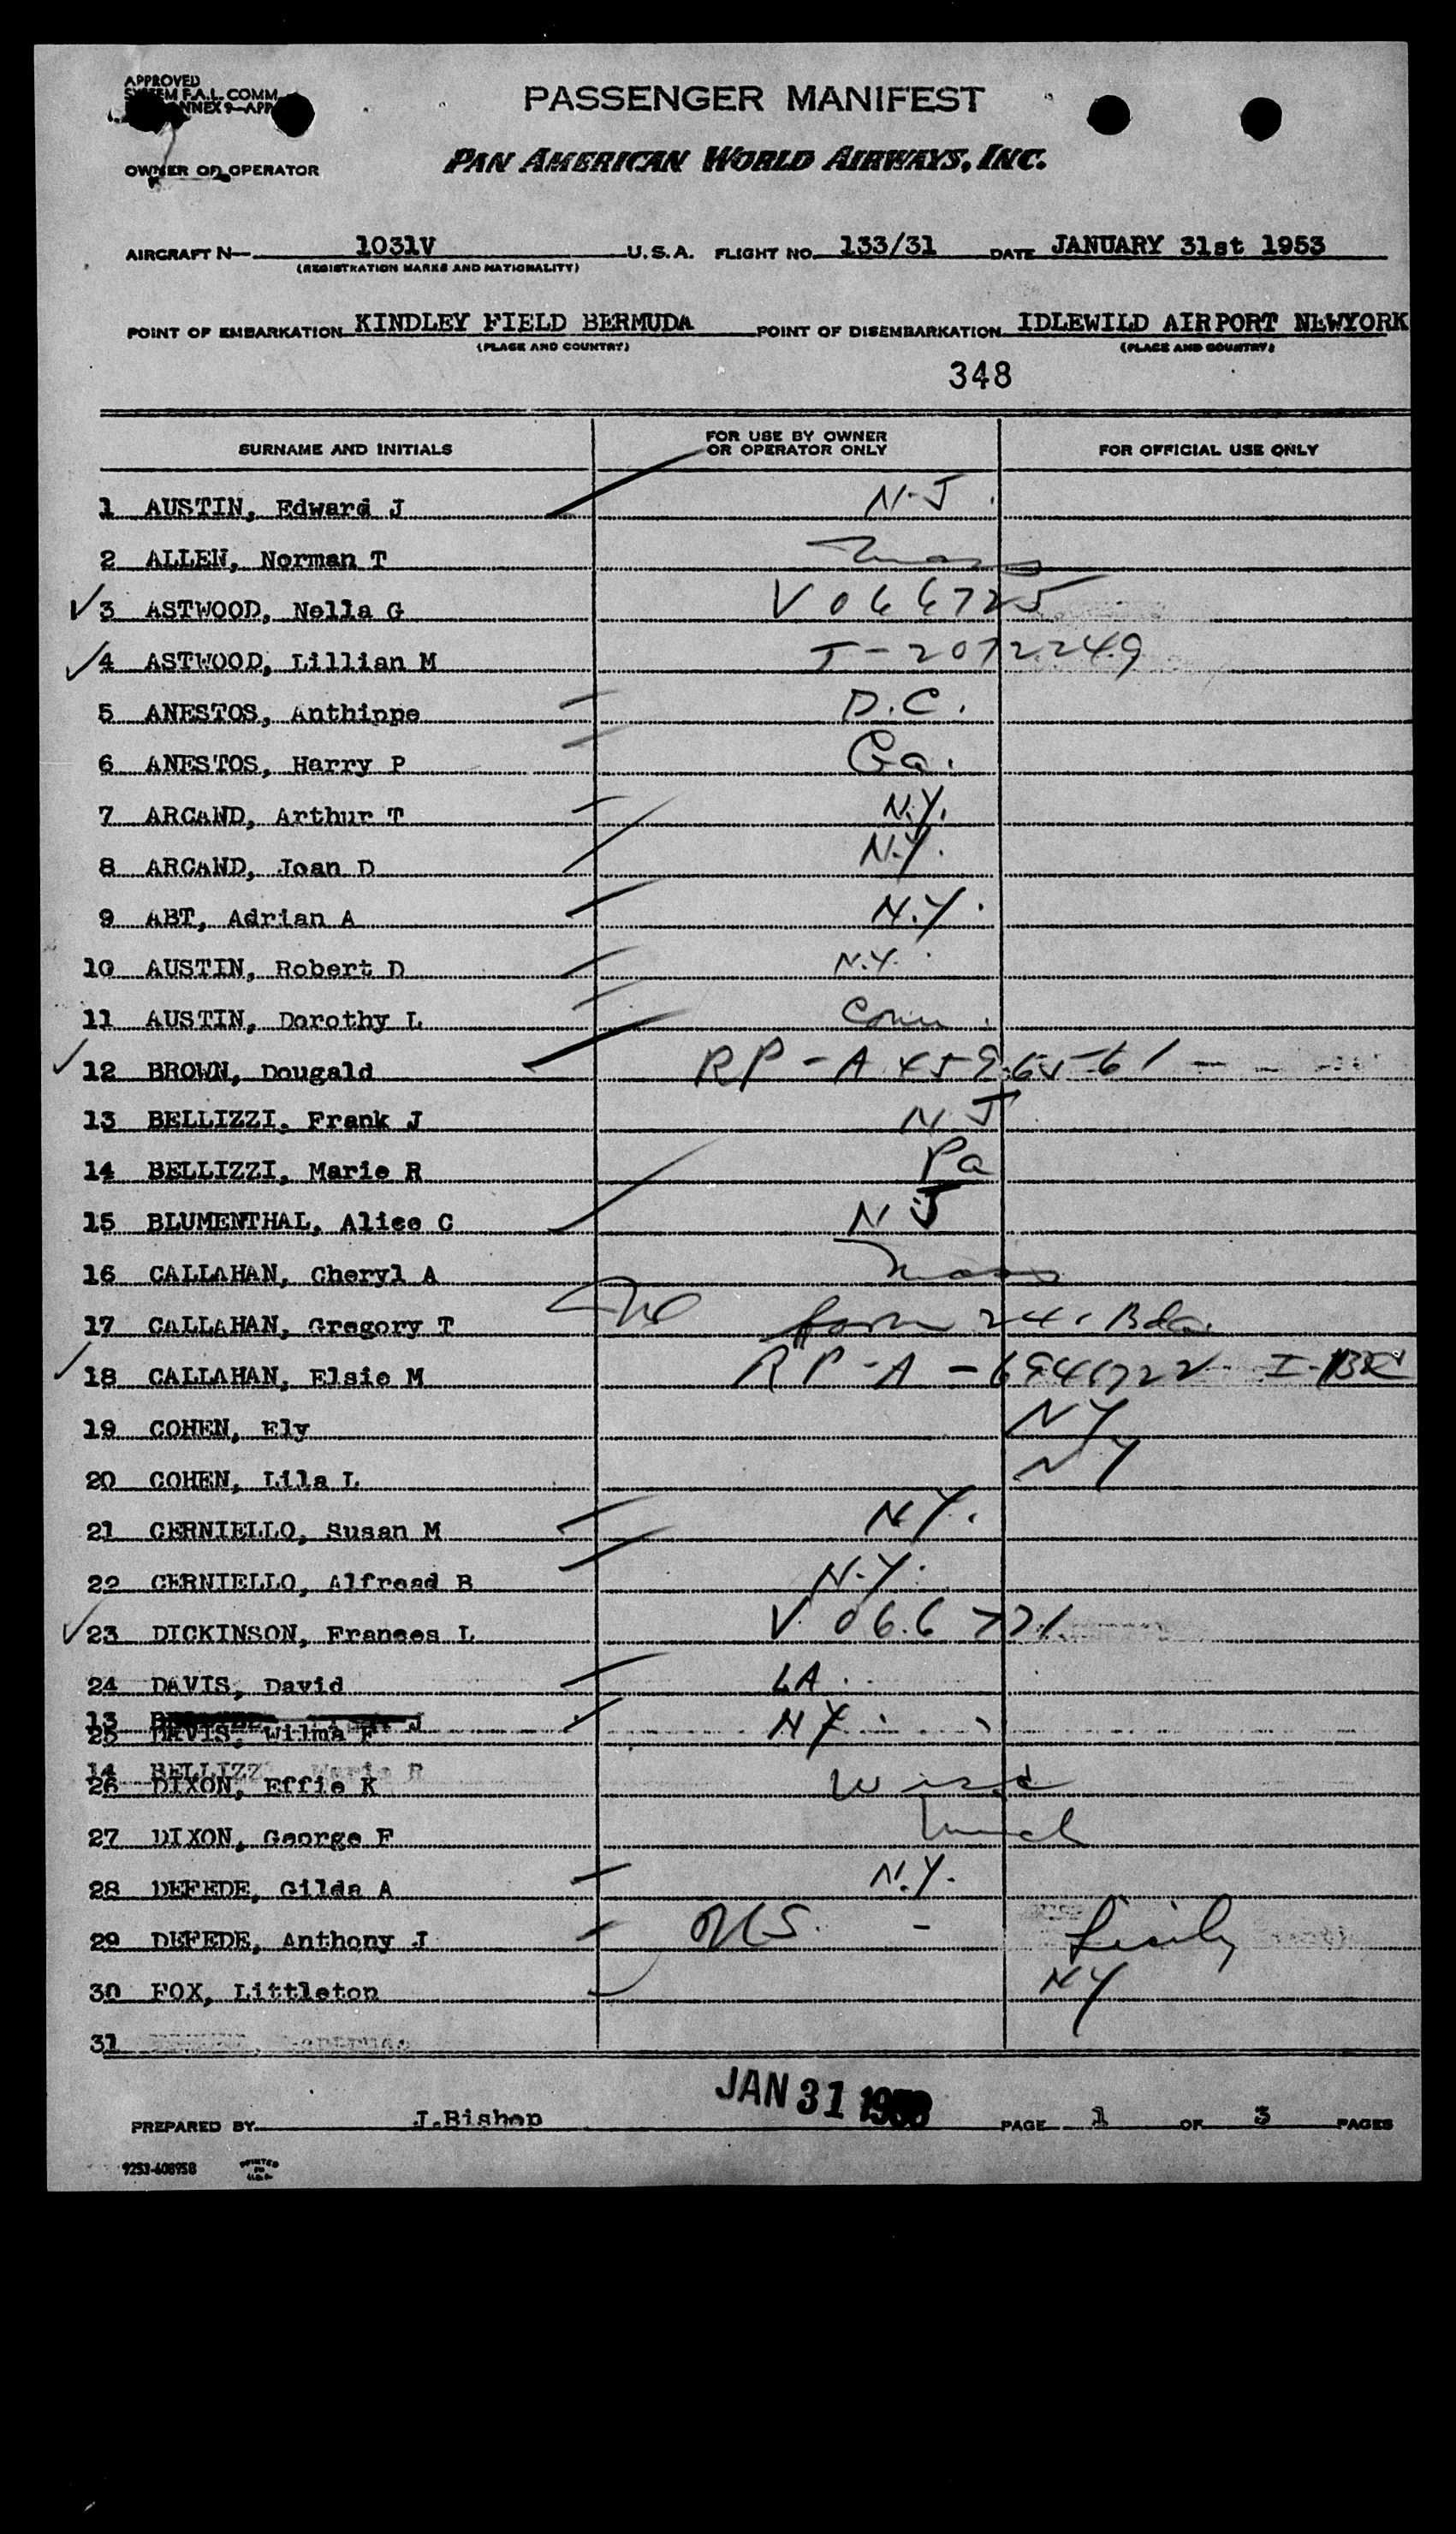 APPROVED
F.A.L. COMM
ANNEX 9—APP
PASSENGER MANIFEST
OWNER OR OPERATOR PAN AMERICAN WORLD AIRWAYS, INC.
AIRCRAFT N— 1031V U.S.A. FLIGHT NO. 133/31 DATE JANUARY 31st 1953
(REGISTRATION MARKS AND NATIONALITY)
POINT OF EMBARKATION KINDLEY FIELD BERMUDA POINT OF DISEMBARKATION IDLEWILD AIRPORT NEWYORK
(PLACE AND COUNTRY) (PLACE AND COUNTRY)
348
SURNAME AND INITIALS FOR USE BY OWNER OR OPERATOR ONLY FOR OFFICIAL USE ONLY
1 AUSTIN, Edward J N.J.
2 ALLEN, Norman T Mass
3 ASTWOOD, Nella G V066725
4 ASTWOOD, Lillian M I-2072249
5 ANESTOS, Anthippe D.C.
6 ANESTOS, Harry P Ga.
7 ARCAND, Arthur T N.Y.
8 ARCAND, Joan D N.Y.
9 ABT, Adrian A N.Y.
10 AUSTIN, Robert D N.Y.
11 AUSTIN, Dorothy L Conn.
12 BROWN, Dougald RP-A
13 BELLIZZI, Frank J NJ
14 BELLIZZI, Marie R Pa
15 BLUMENTHAL, Alice C NJ
16 CALLAHAN, Cheryl A Mass
17 CALLAHAN, Gregory T
18 CALLAHAN, Elsie M RP-A
19 COHEN, Ely NY
20 COHEN, Lila L NY
21 CERNIELLO, Susan M NY.
22 CERNIELLO, Alfread B N.Y.
23 DICKINSON, Frances L V066771
24 DAVIS, David LA.
25 DAVIS, Wilma F NY
26 DIXON, Effie K
27 DIXON, George F Mich
28 DEFEDE, Gilda A N.Y.
29 DEFEDE, Anthony J Sicily
30 FOX, Littleton NY
31
JAN 31 1953
PREPARED BY J.Bishop PAGE 1 OF 3 PAGES
9253-608958 PRINTED IN U.S.A.